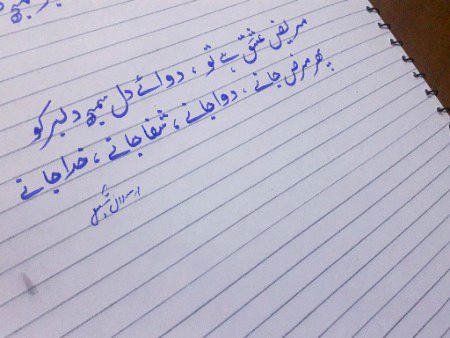 مریض عشق ہے تو ، دوائے دل سمجھ دلبر کو
پھر مرض جانے ، دوا جانے ، شفا جانے ، خدا جانے
ارسلان